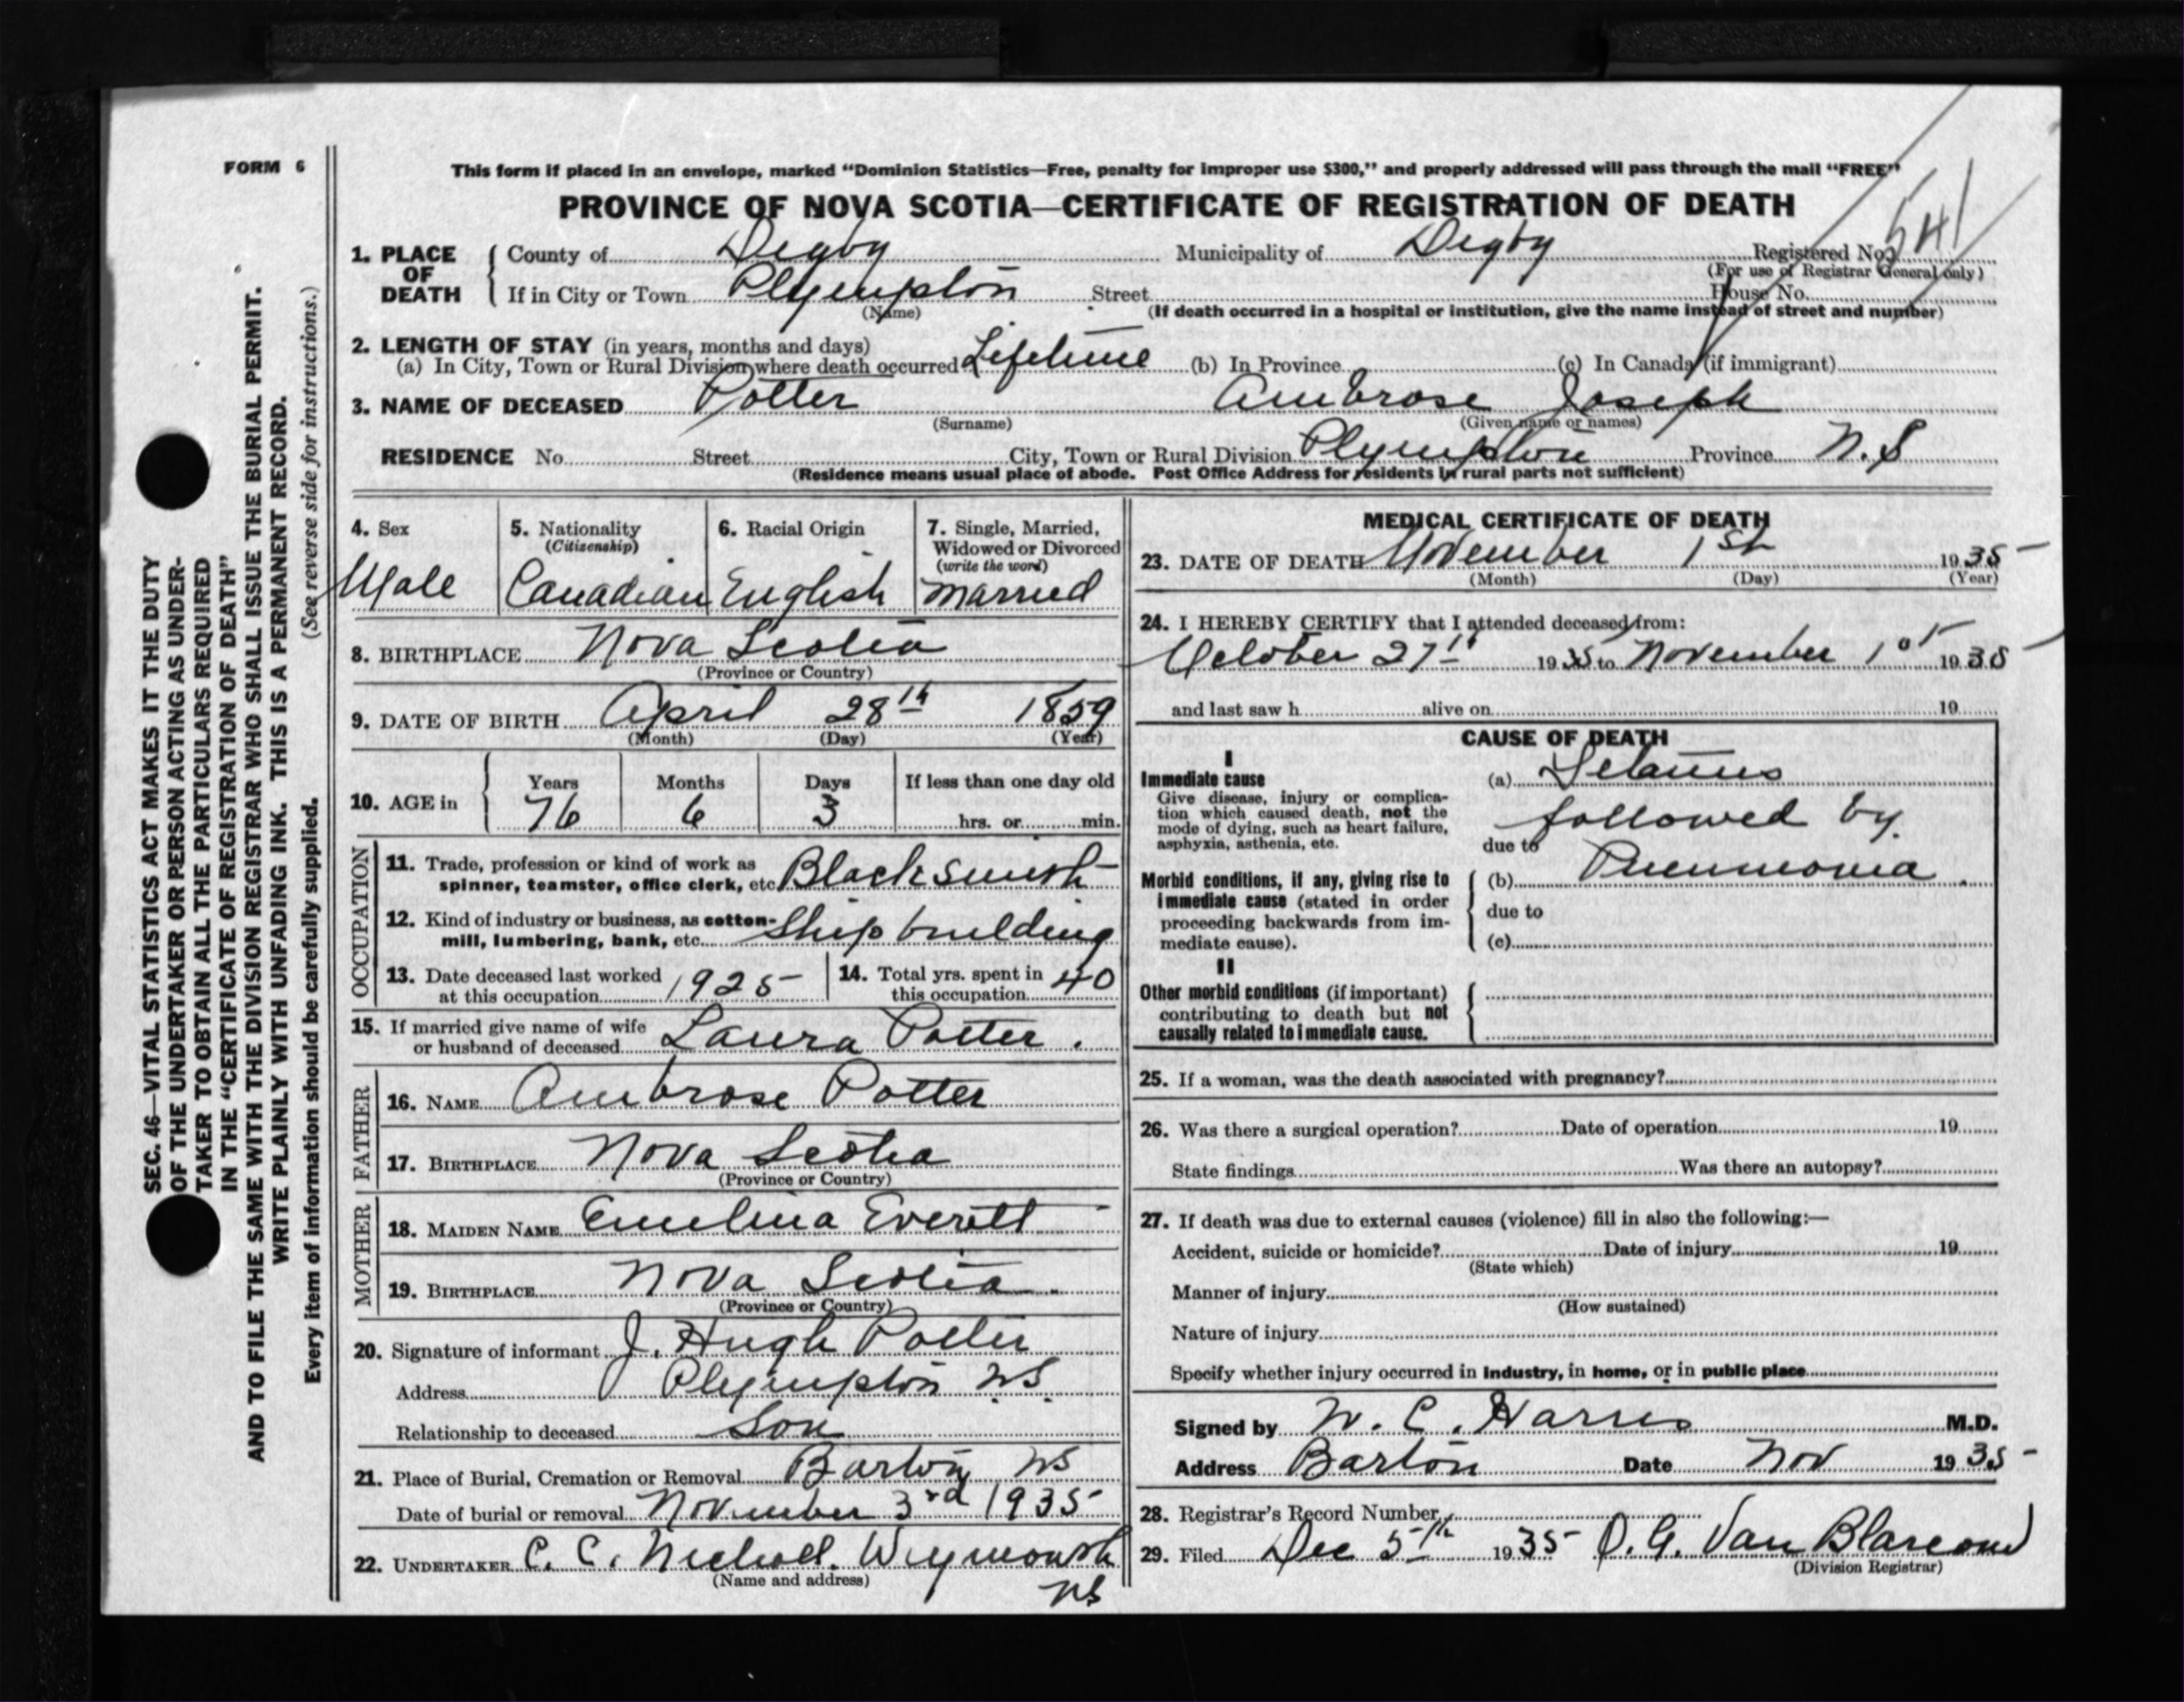 FORM 6
This form if placed in an envelope, marked "Dominion Statistics—Free, penalty for improper use $300," and properly addressed will pass through the mail "FREE"
PROVINCE OF NOVA SCOTIA—CERTIFICATE OF REGISTRATION OF DEATH
1. PLACE OF DEATH
County of Digby Municipality of Digby Registered No. 541
(For use of Registrar General only)
If in City or Town Plympton Street House No.
(Name) (If death occurred in a hospital or institution, give the name instead of street and number)
2. LENGTH OF STAY (in years, months and days)
(a) In City, Town or Rural Division where death occurred Lifetime (b) In Province (c) In Canada (if immigrant)
3. NAME OF DECEASED Potter Ambrose Joseph
(Surname) (Given name or names)
RESIDENCE No. Street City, Town or Rural Division Plympton Province N.S
(Residence means usual place of abode. Post Office Address for residents in rural parts not sufficient)
4. Sex
Male
5. Nationality
(Citizenship)
Canadian
6. Racial Origin
English
7. Single, Married,
Widowed or Divorced
(write the word)
married
8. BIRTHPLACE Nova Scotia
(Province or Country)
9. DATE OF BIRTH April 28th 1859
(Month) (Day) (Year)
10. AGE in
Years Months Days If less than one day old
76 6 3 hrs. or min.
OCCUPATION
11. Trade, profession or kind of work as
spinner, teamster, office clerk, etc. Blacksmith
12. Kind of industry or business, as cotton-
mill, lumbering, bank, etc. Ship building
13. Date deceased last worked
at this occupation 1925
14. Total yrs. spent in
this occupation 40
15. If married give name of wife
or husband of deceased Laura Potter.
FATHER
16. NAME Ambrose Potter
17. BIRTHPLACE Nova Scotia
(Province or Country)
MOTHER
18. MAIDEN NAME Emelina Everett
19. BIRTHPLACE Nova Scotia
(Province or Country)
20. Signature of informant J. Hugh Potter
Address Plympton N.S.
Relationship to deceased Son
21. Place of Burial, Cremation or Removal Barton NS
Date of burial or removal November 3rd 1935
22. UNDERTAKER C. C. Nicholl. Weymouth
(Name and address) NS
MEDICAL CERTIFICATE OF DEATH
23. DATE OF DEATH November 1st 1935
(Month) (Day) (Year)
24. I HEREBY CERTIFY that I attended deceased from:
October 27th 1935 to November 1st 1935
and last saw h alive on 19
CAUSE OF DEATH
I
Immediate cause
Give disease, injury or complica-
tion which caused death, not the
mode of dying, such as heart failure,
asphyxia, asthenia, etc.
(a) Tetanus
followed by.
due to
Morbid conditions, if any, giving rise to
immediate cause (stated in order
proceeding backwards from im-
mediate cause).
(b) Pneumonia.
due to
(c)
II
Other morbid conditions (if important)
contributing to death but not
causally related to immediate cause.
25. If a woman, was the death associated with pregnancy?
26. Was there a surgical operation? Date of operation 19
State findings Was there an autopsy?
27. If death was due to external causes (violence) fill in also the following:—
Accident, suicide or homicide? Date of injury 19
(State which)
Manner of injury
(How sustained)
Nature of injury
Specify whether injury occurred in industry, in home, or in public place
Signed by W. C. Harris M.D.
Address Barton Date Nov 1935
28. Registrar's Record Number
29. Filed Dec 5th 1935 O. G. Van Blarcom
(Division Registrar)
SEC. 46—VITAL STATISTICS ACT MAKES IT THE DUTY
OF THE UNDERTAKER OR PERSON ACTING AS UNDER-
TAKER TO OBTAIN ALL THE PARTICULARS REQUIRED
IN THE "CERTIFICATE OF REGISTRATION OF DEATH"
AND TO FILE THE SAME WITH THE DIVISION REGISTRAR WHO SHALL ISSUE THE BURIAL PERMIT.
WRITE PLAINLY WITH UNFADING INK. THIS IS A PERMANENT RECORD.
Every item of information should be carefully supplied. (See reverse side for instructions.)